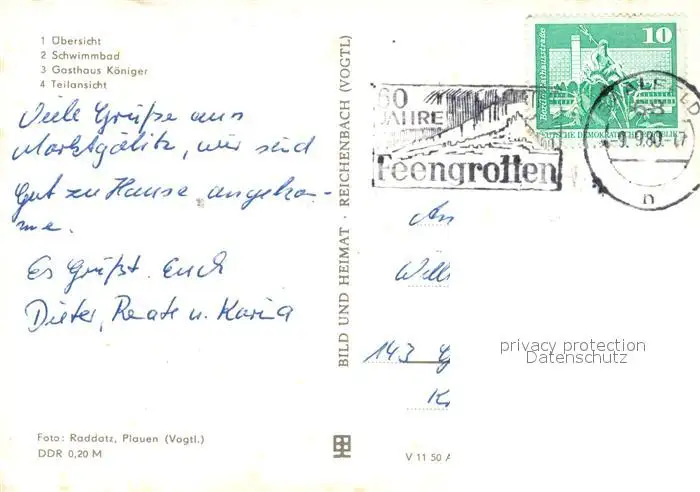 1 Übersicht
2 Schwimmbad
3 Gasthaus Königer
4 Teilansicht
Viele Grüße aus
Marktgölitz, wir sind
gut zu Hause angekom-
me.
Es Grüßt Euch
Dieter, Renate u. Karina
Foto: Raddatz, Plauen (Vogtl.)
DDR 0,20 M
BILD UND HEIMAT · REICHENBACH (VOGTL)
V 11 50 A
60
JAHRE
Feengrotten
10
Berlin, Rathausstraße
DEUTSCHE DEMOKRATISCHE REPUBLIK
SAALFELD
-9. 9.80.-17
n
An
Will
143 G
K
privacy protection
Datenschutz